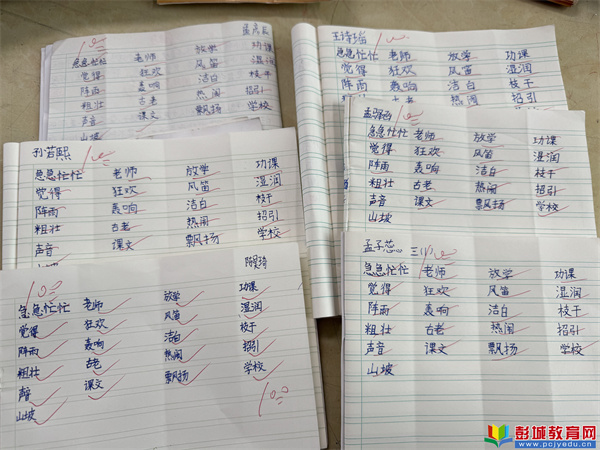 100
急急忙忙 老师 放学 功课
觉得 狂欢 风笛 湿润
阵雨 轰响 洁白 枝干
粗壮 古老 热闹 招引
声音 课文 飘扬 学校
山坡
急急忙忙 老师 放学 功课
觉得 狂欢 风笛 湿润
阵雨 轰响 洁白 枝干
古老 热闹 招引
孙若熙 100
急急忙忙 老师 放学 功课
觉得 狂欢 风笛 湿润
阵雨 轰响 洁白 枝干
粗壮 古老 热闹 招引
声音 课文 飘扬 学校
100
急急忙忙 老师 放学 功课
觉得 狂欢 风笛 湿润
阵雨 轰响 洁白 枝干
粗壮 古老 热闹 招引
声音 课文 飘扬 学校
山坡
100
急急忙忙 老师 放学 功课
觉得 狂欢 风笛 湿润
阵雨 轰响 洁白 枝干
粗壮 古老 热闹 招引
声音 课文 飘扬 学校
山坡
100
孟子蕊 三(1) 100
急急忙忙 老师 放学 功课
觉得 狂欢 风笛 湿润
阵雨 轰响 洁白 枝干
粗壮 古老 热闹 招引
声音 课文 飘扬 学校
山坡
彭城教育网
www.pcjyedu.cn